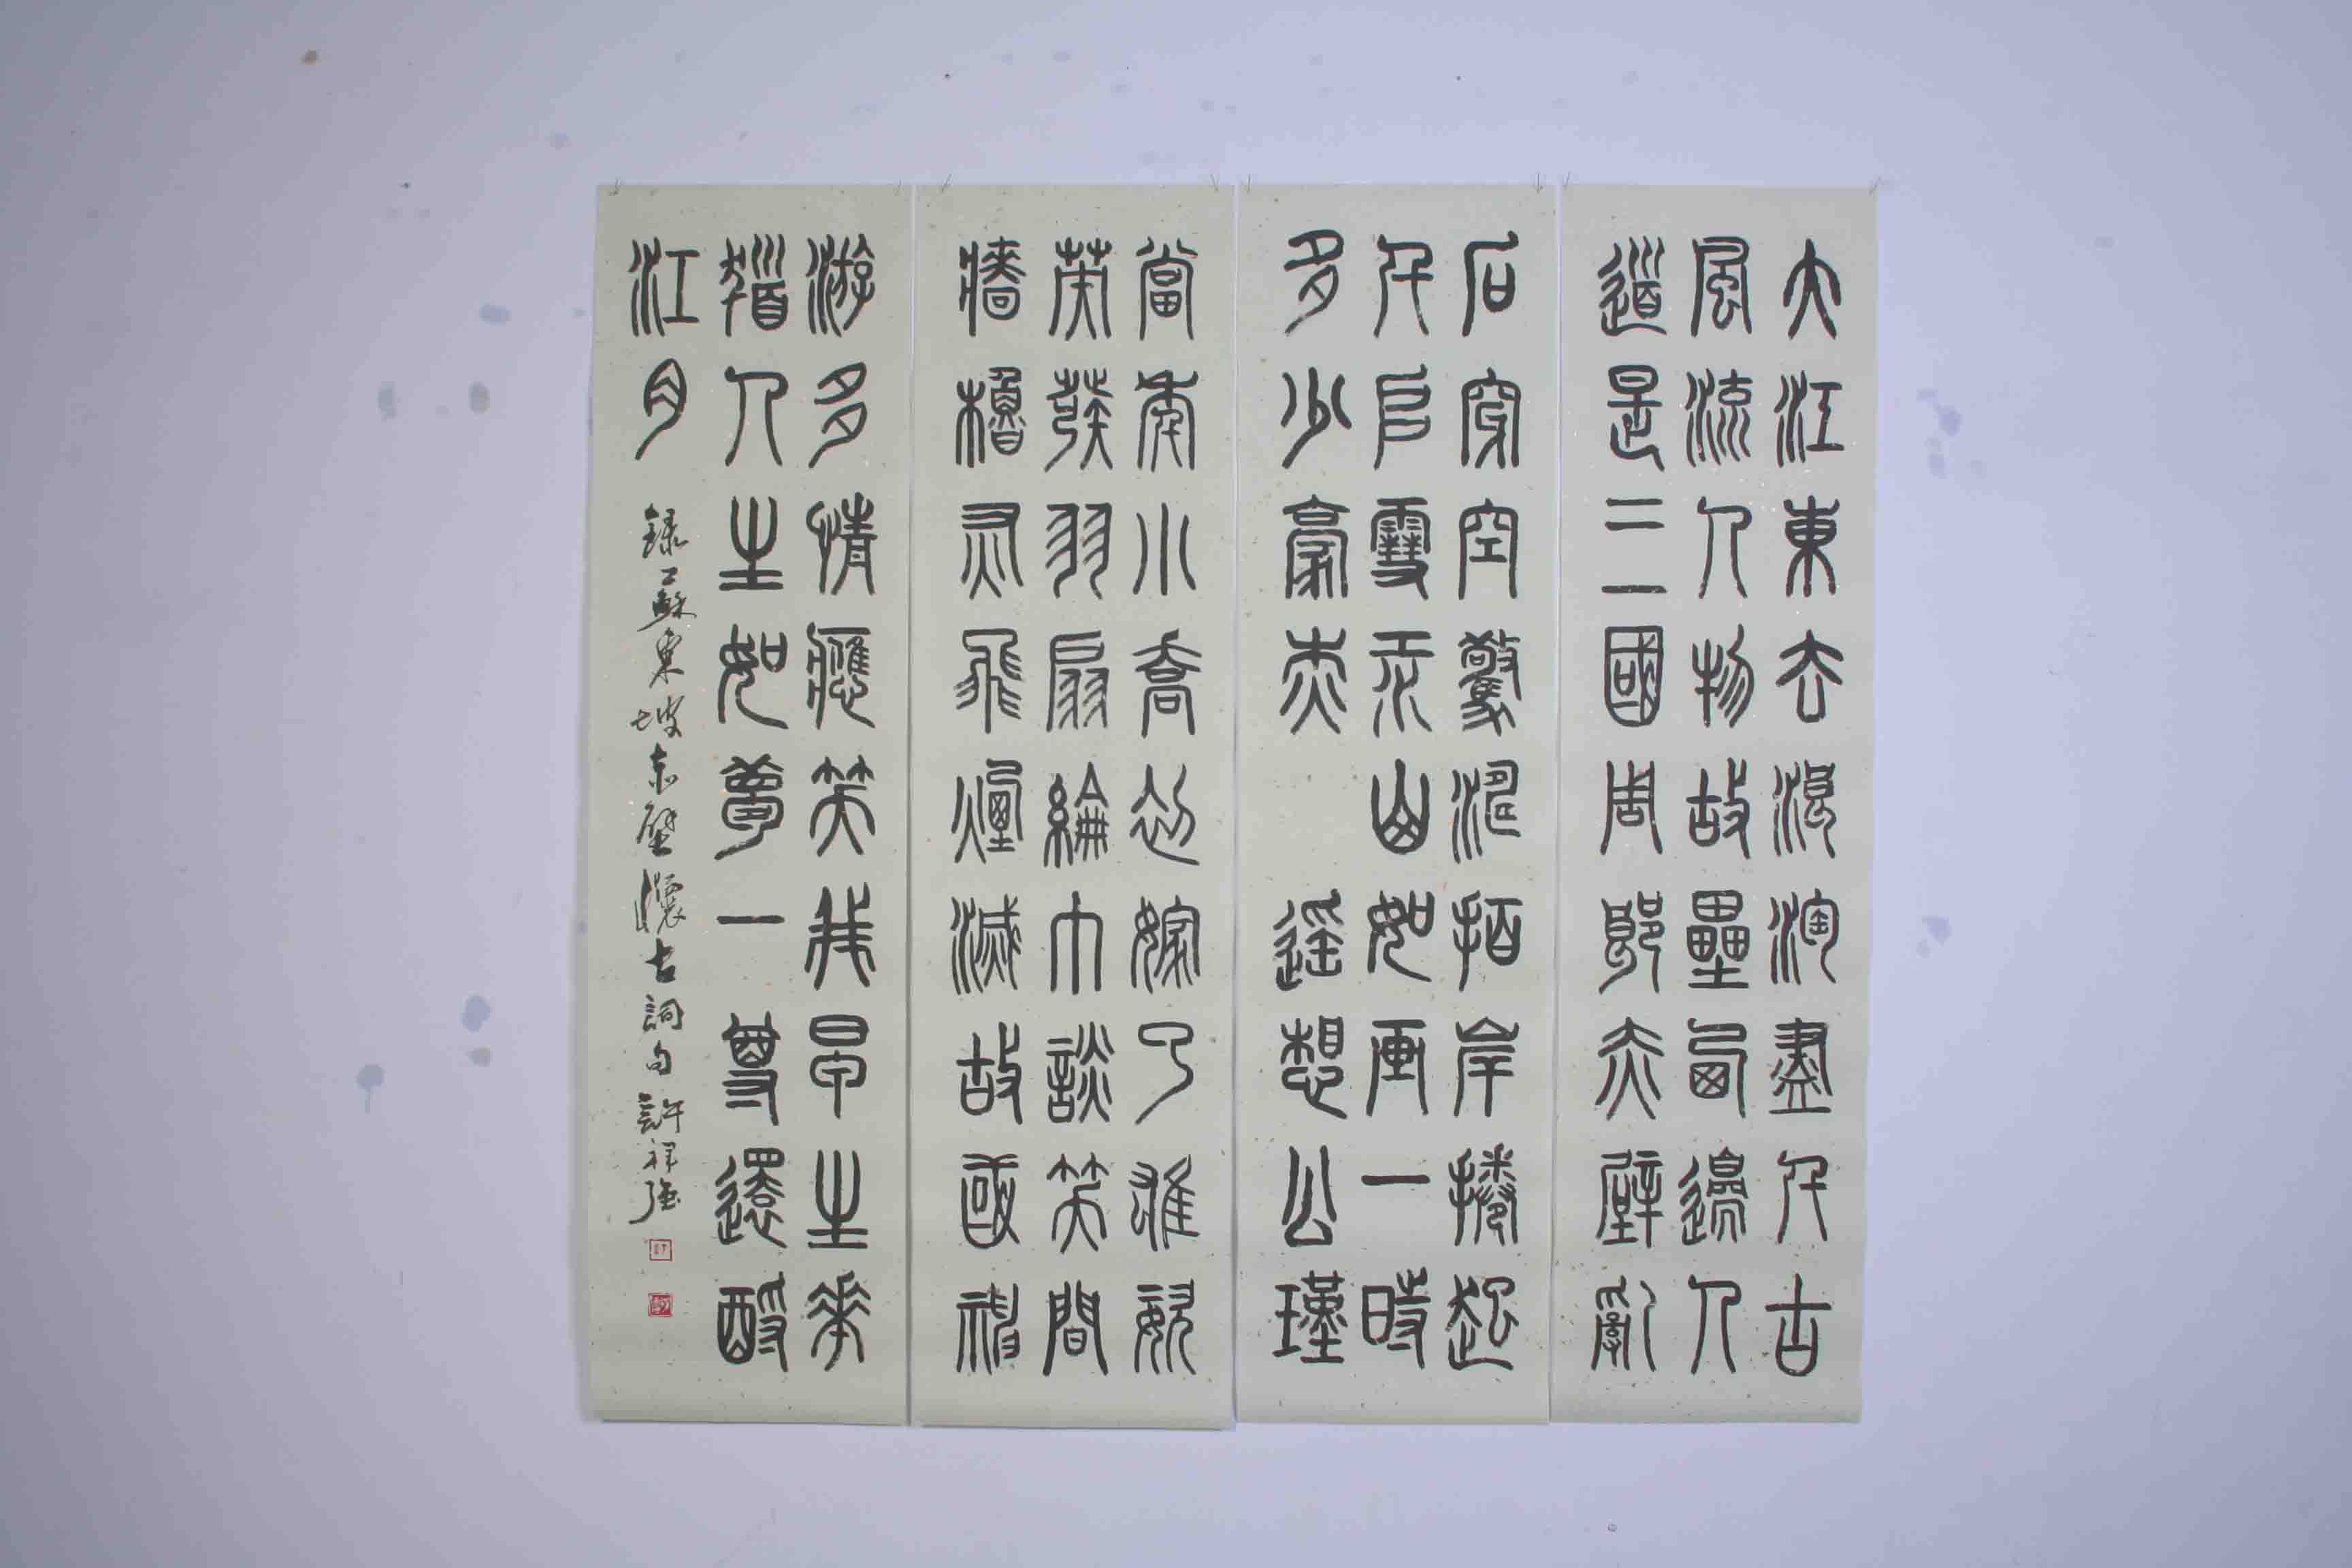 大江東去浪淘盡千古
風流人物故壘西邊人
道是三國周郎赤壁亂
石穿空驚濤拍岸捲起
千堆雪江山如画一時
多少豪杰 遙想公瑾
當年小喬初嫁了雄姿
英發羽扇綸巾談笑間
檣櫓灰飛煙滅故國神
游多情應笑我早生華
髮人生如夢一尊還酹
江月 錄蘇東坡赤壁懷古詞句 許祥強